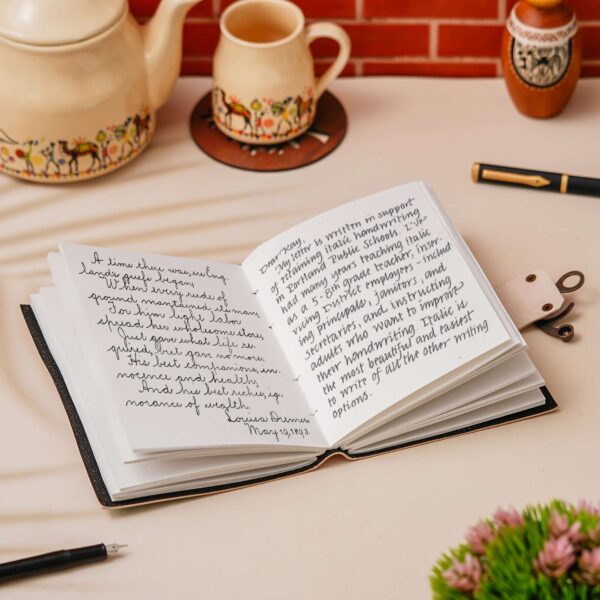 A time there was, ere Eng
land's griefs began,
When every rood of
ground maintained its man;
For him light labor
spread her wholesome store,
Just gave what life re
quired, but gave no more;
His best companions, in
nocence and health;
And his best riches, ig
norance of wealth.
Louisa Diemer
May 19, 1893.
Dear Kay,
My letter is written in support
of retaining italic handwriting
in Portland Public Schools. I've
had many years teaching italic
as a 5-8th grade teacher, inser-
vicing District employees - includ-
ing principals, janitors, and
secretaries, and instructing
adults who want to improve
their handwriting. Italic is
the most beautiful and easiest
to write of all the other writing
options.